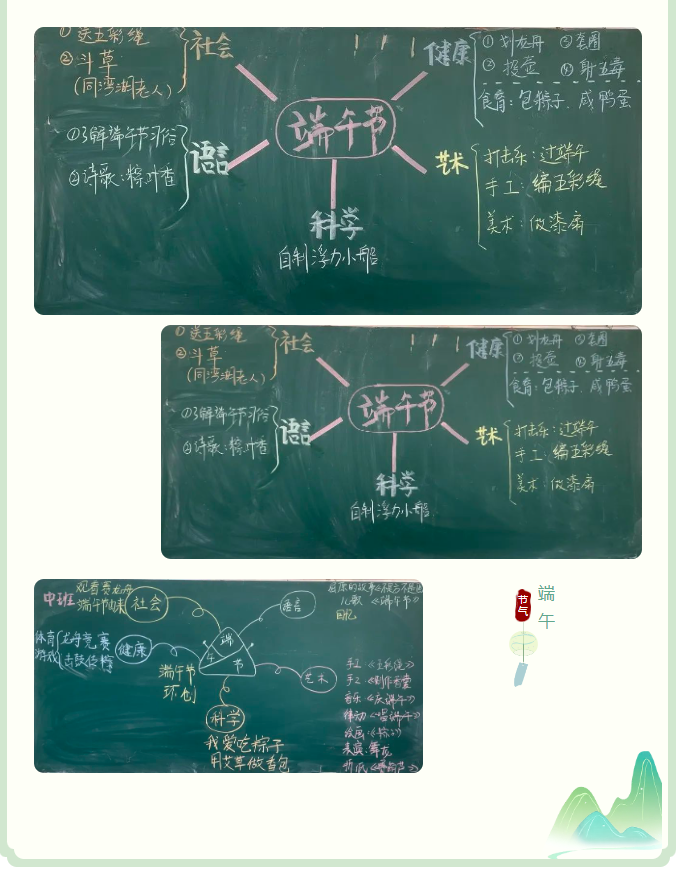 ①送五彩绳
②斗草
(同湾湖老人)
社会
①了解端午节习俗
②诗歌:粽叶香
语言
端午节
科学
自制浮力小船
健康
①划龙舟 ③套圈
②投壶 ④射五毒
食育:包粽子、咸鸭蛋
艺术
打击乐:过端午
手工:编五彩绳
美术:做漆扇
①送五彩绳
②斗草
(同湾湖老人)
社会
①了解端午节习俗
②诗歌:粽叶香
语言
端午节
科学
自制浮力小船
健康
①划龙舟 ③套圈
②投壶 ④射五毒
食育:包粽子、咸鸭蛋
艺术
打击乐:过端午
手工:编五彩绳
美术:做漆扇
中班
观看赛龙舟
社会
体育 龙舟竞赛
游戏 击鼓传粽
健康
端午节
端午节
环创
科学
我爱吃粽子
用艾草做香包
语言
儿歌 《端午节》
艺术
手工《五彩绳》
手工《制作香囊》
音乐《庆端午》
律动《唱端午》
绘画:《粽子》
表演:舞龙
节气
端午